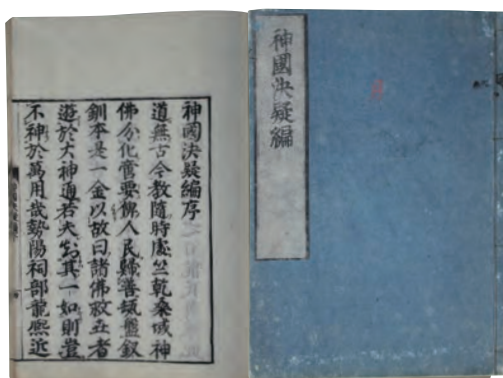 神國决疑編
神國决疑編序
道無古今教隨時處竺乾桑域神
佛分化啻要俾人民歸善瓶盤釵
釧本是一金以故曰諸佛救世者
遊於大神通若夫到其一如則豈
不神於萬用哉勢陽祠部龍熈近